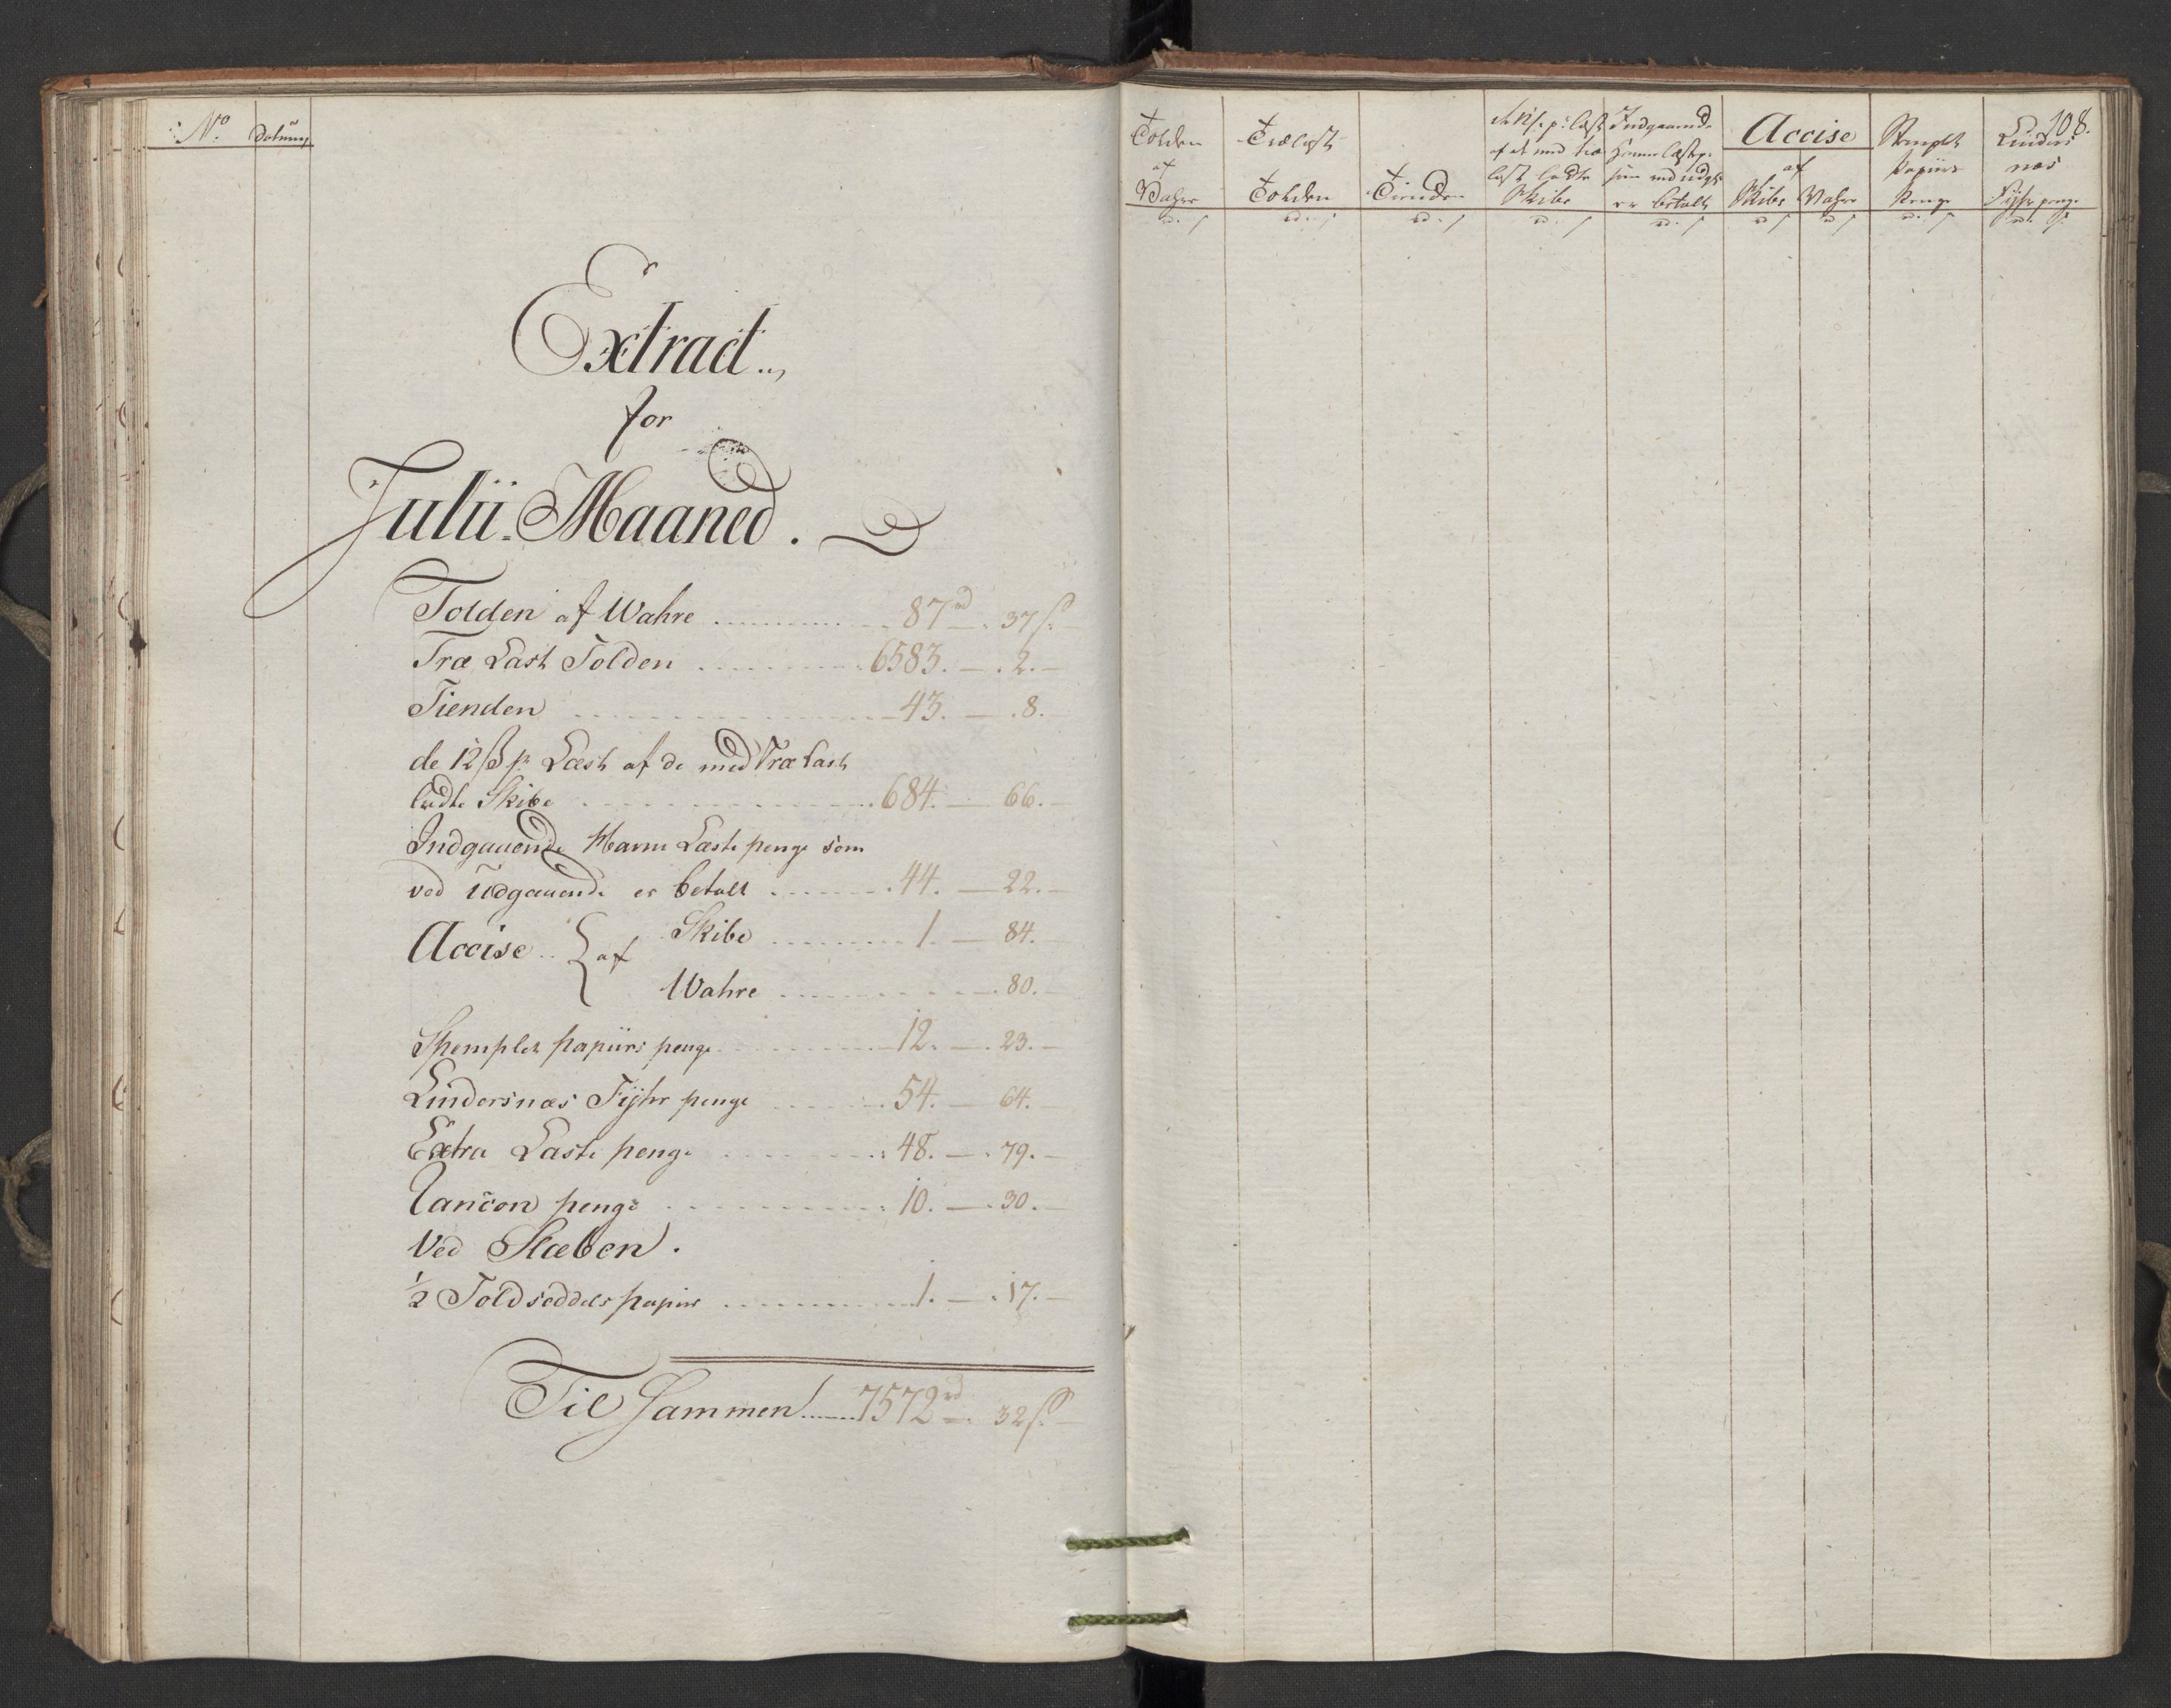 No. Datum
Extract
for
Julii Maaned.
Tolden af Wahre 87 rd. 37 s.
Træ Last Tolden 6583. — 2. —
Tienden 43. — 8. —
de 12 ß pr Læst af de med Træ Last
ladte Skibe 684. — 66. —
Indgaaende Havne Læste penge som
ved Udgaaende er betalt 44. — 22. —
Accise af Skibe 1. — 84. —
Wahre 80. —
Stemplet papiirs penge 12. — 23. —
Lindersnæs Fyhr penge 54. — 64. —
Extra Læste penge 48. — 79. —
Rancon penge 10. — 30. —
Ved Slæben.
1/2 Toldseddels papiir 1. — 17. —
Til Sammen 7572 rd. 32 s.
108.
Tolden af Wahre
Trælast Tolden
Tiende
12 s. pr læst af de med træ last ladte Skibe
Indgaaende Havne læstep. som ved udg. er betalt
Accise af
Skibe
Wahre
Stemplet Papiirs Penge
Linders næs Fyhr penge